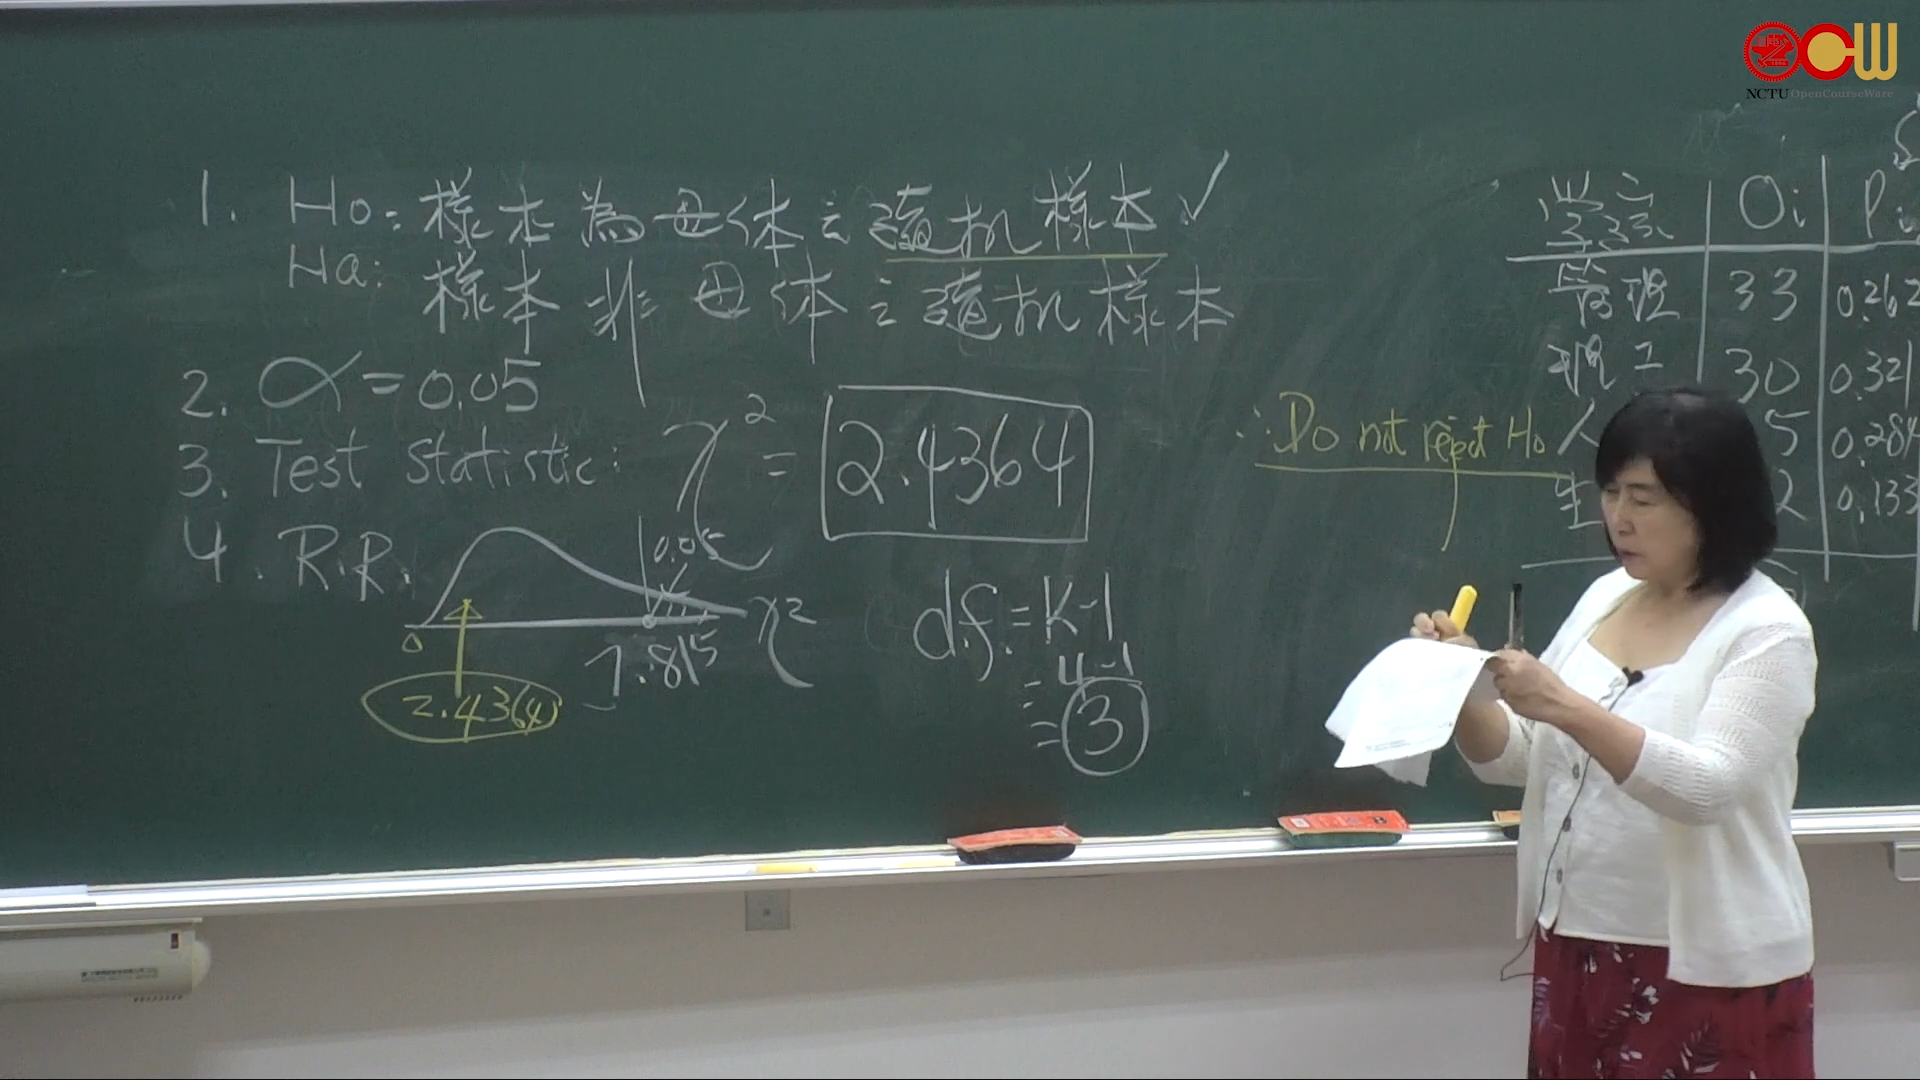 NCTU OpenCourseWare
1. Ho: 樣本為母体之隨机樣本 ✓
Ha: 樣本非母体之隨机樣本
2. α = 0.05
3. Test statistic: χ² = 2.4364
4. R.R.
0.05
0
7.815
χ²
2.4364
d.f. = K-1
= 4-1
= 3
∴ Do not reject Ho
學院 Oi Pi
管理 33 0.262
理工 30 0.321
人 5 0.284
生 2 0.133